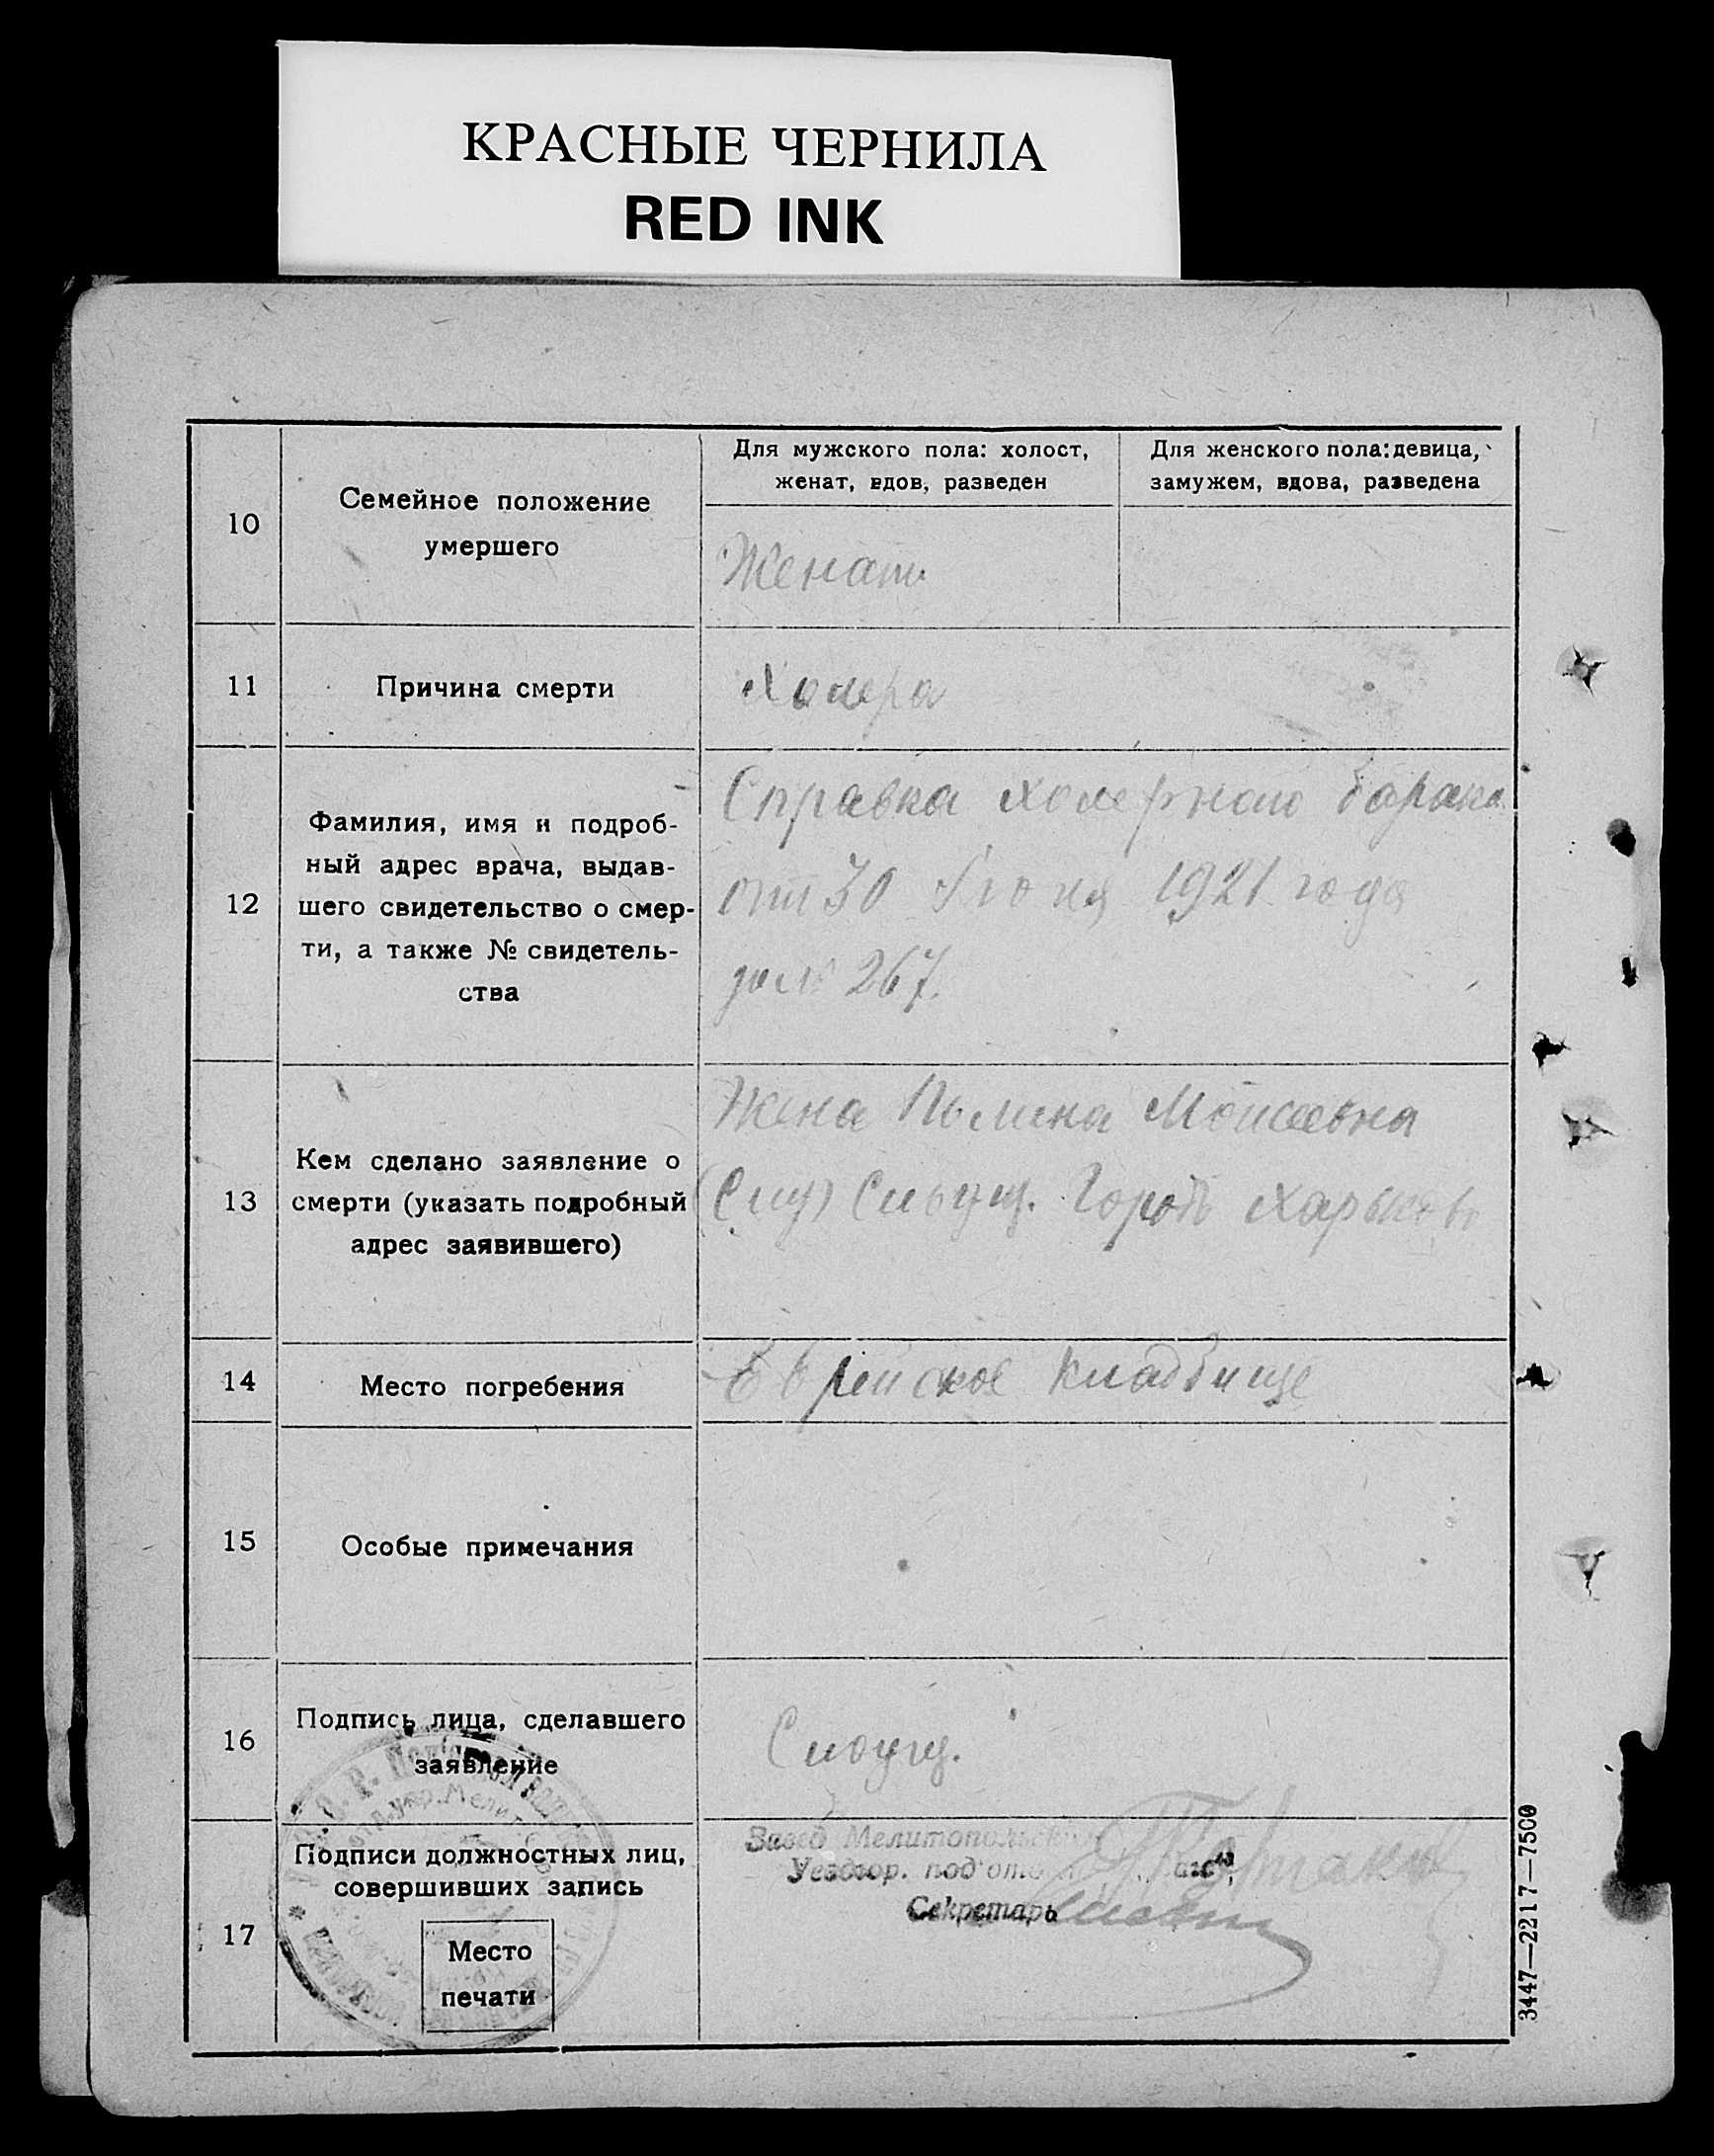 КРАСНЫЕ ЧЕРНИЛА
RED INK
10
Семейное положение
умершего
Для мужского пола: холост,
женат, вдов, разведен
Для женского пола: девица,
замужем, вдова, разведена
Женат
11
Причина смерти
Холера
12
Фамилия, имя и подроб-
ный адрес врача, выдав-
шего свидетельство о смер-
ти, а также № свидетель-
ства
Справка холерного барака
от 30 Июня 1921 года
за № 267.
13
Кем сделано заявление о
смерти (указать подробный
адрес заявившего)
Жена Полина Моисеевна
Город Харьков
14
Место погребения
Еврейское Кладбище
15
Особые примечания
16
Подпись лица, сделавшего
заявление
17
Подписи должностных лиц,
совершивших запись
Место
печати
Завед Мелитопольск
Уездгор. под'отд
Секретарь
3447—2217—7500